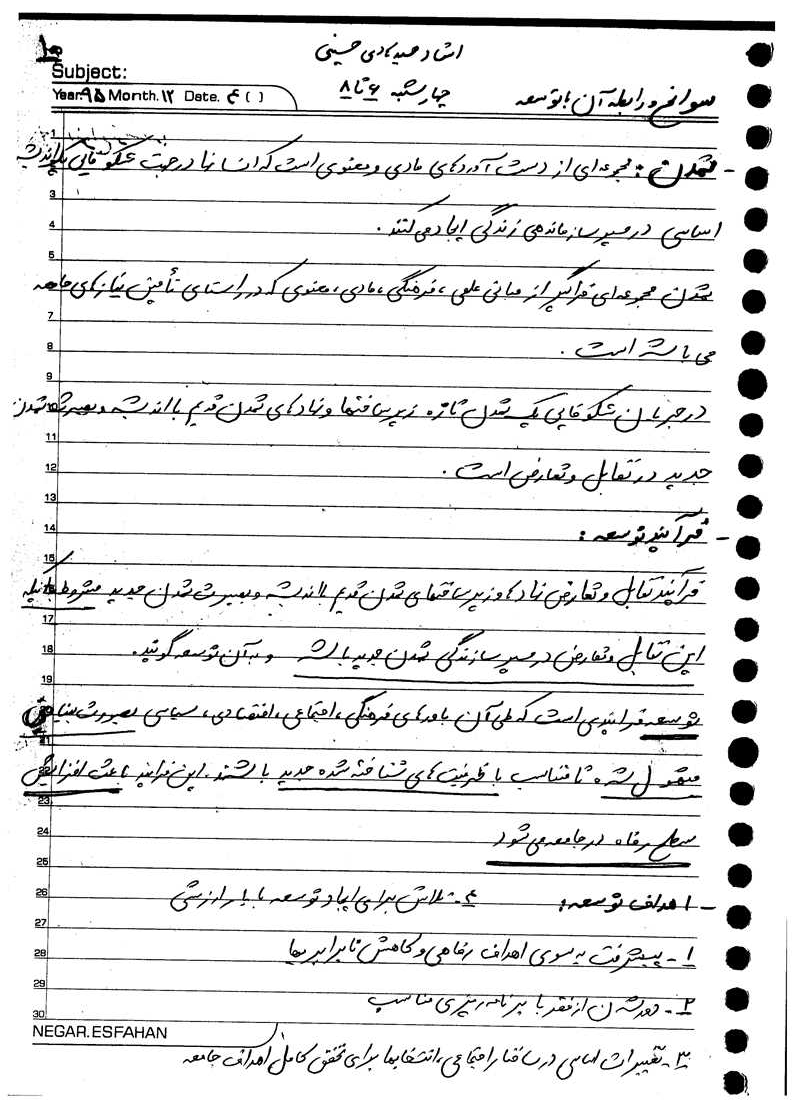 استاد سید هادی حسینی
Subject:
Year. ۹۵ Month. ۱۲ Date. ۴ ( )
چهارشنبه ۶ تا ۸
سواد و رابطه آن با توسعه
- تمدن : مجموعه‌ای از دست آوردهای مادی و معنوی است که انسانها در جهت شکوفایی یک اندیشه
اساسی در مسیر سازماندهی زندگی ایجاد می‌کنند.
تمدن مجموعه‌ای فراگیر از مبانی علمی ، فرهنگی ، مادی ، معنوی که در راستای تأمین نیازهای جامعه
می باشد است .
در جریان شکوفایی یک تمدن تازه زیرساختها و نمادهای تمدن قدیم با اندیشه و بصیرت تمدن
جدید در تقابل و تعارض است .
- فرآیند توسعه :
فرآیند تقابل و تعارض نمادها و زیرساختهای تمدن قدیم با اندیشه و بصیرت تمدن جدید مشروط به اینکه
این تقابل و تعارض در مسیر سازندگی تمدن جدید باشد و به آن توسعه گویند.
توسعه فرایندی است که طی آن باورهای فرهنگی ، اجتماعی ، اقتصادی ، سیاسی بصورت بنیادی
متحول شده تا متناسب با ظرفیت های شناخته شده جدید باشند. این فرایند باعث افزایش
سطح رفاه در جامعه می شود
- اهداف توسعه : ۴- تلاش برای ایجاد توسعه با بار ارزشی
۱- پیشرفت به سوی اهداف رفاهی و کاهش نابرابریها
۲- دور شدن از فقر با برنامه ریزی مناسب
NEGAR.ESFAHAN
۳- تغییرات اساسی در ساختار اجتماعی ، برای تحقق کامل اهداف جامعه